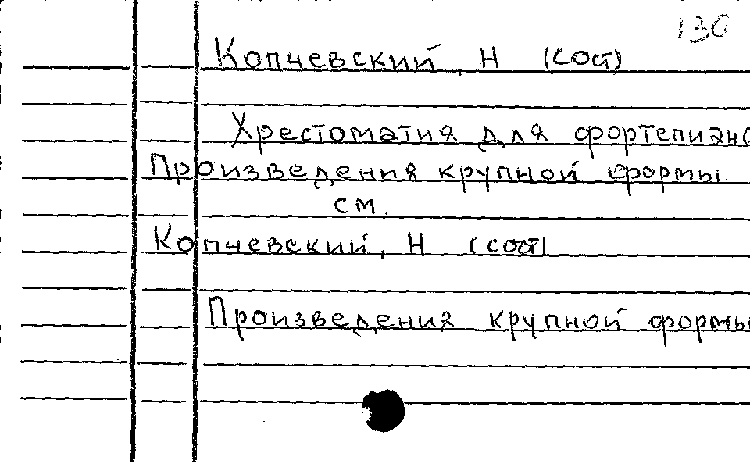 130
Копчевский, Н (сост)
Хрестоматия для фортепиано
Произведения крупной формы
см.
Копчевский, Н (сост)
Произведения крупной формы